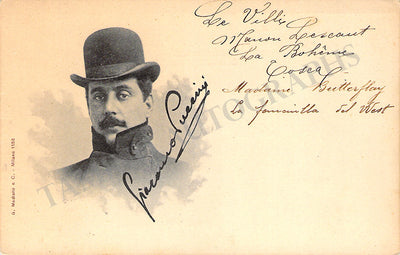 Le Villi
Manon Lescaut
La Bohème
Tosca
Madame Butterflay
La fanciulla del West
Giacomo Puccini
G. Modiano e C. - Milano 1556
AUTOGRAPHS